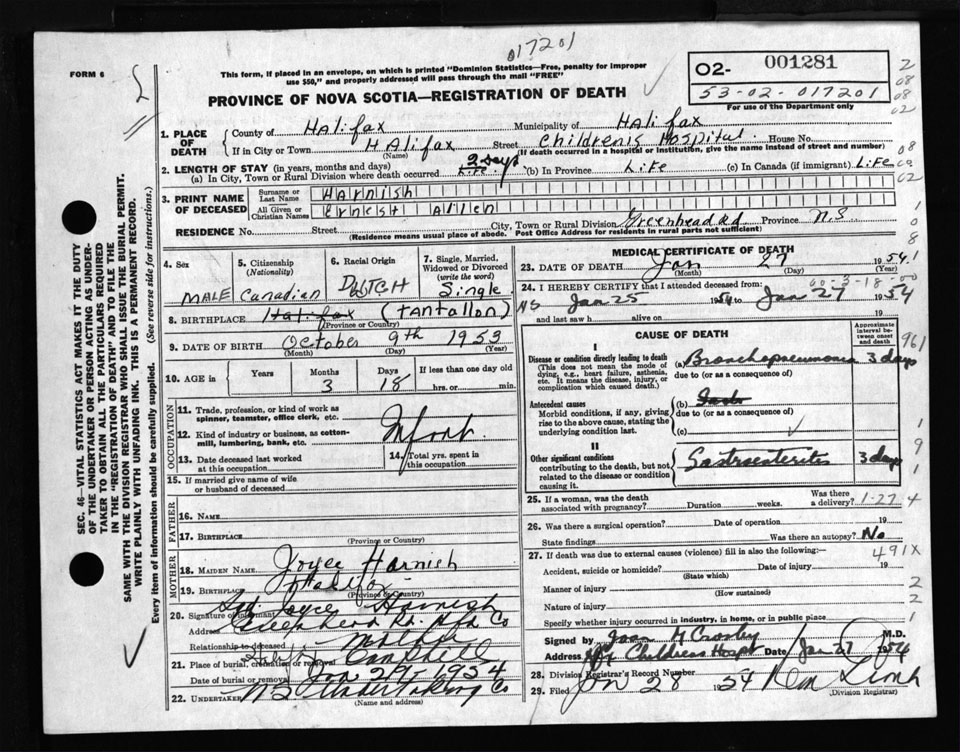 017201
FORM 6
This form, if placed in an envelope, on which is printed "Dominion Statistics—Free, penalty for improper
use $50," and properly addressed will pass through the mail "FREE"
02- 001281
53-02-017201
For use of the Department only
PROVINCE OF NOVA SCOTIA—REGISTRATION OF DEATH
1. PLACE OF DEATH
County of Halifax Municipality of Halifax
If in City or Town Halifax Street Children's Hospital House No.
(Name) (If death occurred in a hospital or institution, give the name instead of street and number)
2. LENGTH OF STAY (in years, months and days)
(a) In City, Town or Rural Division where death occurred Life 2 days (b) In Province Life (c) In Canada (if immigrant) Life
3. PRINT NAME OF DECEASED
Surname or Last Name Harnish
All Given or Christian Names Ernest Allen
RESIDENCE No. Street City, Town or Rural Division Greenhead Rd Province N.S
(Residence means usual place of abode. Post Office Address for residents in rural parts not sufficient)
4. Sex MALE
5. Citizenship (Nationality) Canadian
6. Racial Origin DUTCH
7. Single, Married, Widowed or Divorced (write the word) Single
8. BIRTHPLACE Halifax (Tantallon)
(Province or Country)
9. DATE OF BIRTH October 9th 1953
(Month) (Day) (Year)
10. AGE in Years Months 3 Days 18 If less than one day hrs. or min.
11. Trade, profession, or kind of work as spinner, teamster, office clerk, etc.
12. Kind of industry or business, as cotton-mill, lumbering, bank, etc. Infant
13. Date deceased last worked at this occupation
14. Total yrs. spent in this occupation
15. If married give name of wife or husband of deceased
FATHER
16. Name
17. Birthplace
(Province or Country)
MOTHER
18. MAIDEN NAME Joyce Harnish
19. Birthplace Halifax
(Province or Country)
20. Signature of informant Sgd. Joyce Harnish
Address Greenhead Rd. Hfx Co
Relationship to deceased Mother
21. Place of burial, cremation or removal
Date of burial or removal Jan 29, 1954
22. UNDERTAKER NS Undertaking Co
(Name and address)
MEDICAL CERTIFICATE OF DEATH
23. DATE OF DEATH Jan 27 1954
(Month) (Day) (Year)
24. I HEREBY CERTIFY that I attended deceased from:
Jan 25 1954 to Jan 27 1954
and last saw h alive on 19
CAUSE OF DEATH
Approximate interval between onset and death
I
Disease or condition directly leading to death
(This does not mean the mode of dying, e.g., heart failure, asthenia, etc. It means the disease, injury, or complication which caused death.)
(a) Bronchopneumonia 3 days
due to (or as a consequence of)
Antecedent causes
Morbid conditions, if any, giving rise to the above cause, stating the underlying condition last.
(b)
due to (or as a consequence of)
(c)
II
Other significant conditions
contributing to the death, but not related to the disease or condition causing it.
Gastroenteritis 3 days
25. If a woman, was the death associated with pregnancy? Duration weeks. Was there a delivery? 1-27-4
26. Was there a surgical operation? Date of operation 19
State findings Was there an autopsy? No
27. If death was due to external causes (violence) fill in also the following:— 491X
Accident, suicide or homicide? Date of injury 19
(State which)
Manner of injury
(How sustained)
Nature of injury
Specify whether injury occurred in industry, in home, or in public place
Signed by Joan H Crosby M.D.
Address Hfx Childrens Hospt Date Jan 27 1954
28. Division Registrar's Record Number
29. Filed Jan 28 1954
(Division Registrar)
SEC. 46 VITAL STATISTICS ACT MAKES IT THE DUTY
OF THE UNDERTAKER OR PERSON ACTING AS UNDER-
TAKER TO OBTAIN ALL THE PARTICULARS REQUIRED
IN THE "REGISTRATION OF DEATH" AND TO FILE THE
SAME WITH THE DIVISION REGISTRAR WHO SHALL ISSUE THE BURIAL PERMIT.
WRITE PLAINLY WITH UNFADING INK. THIS IS A PERMANENT RECORD.
Every item of information should be carefully supplied. (See reverse side for instructions.)